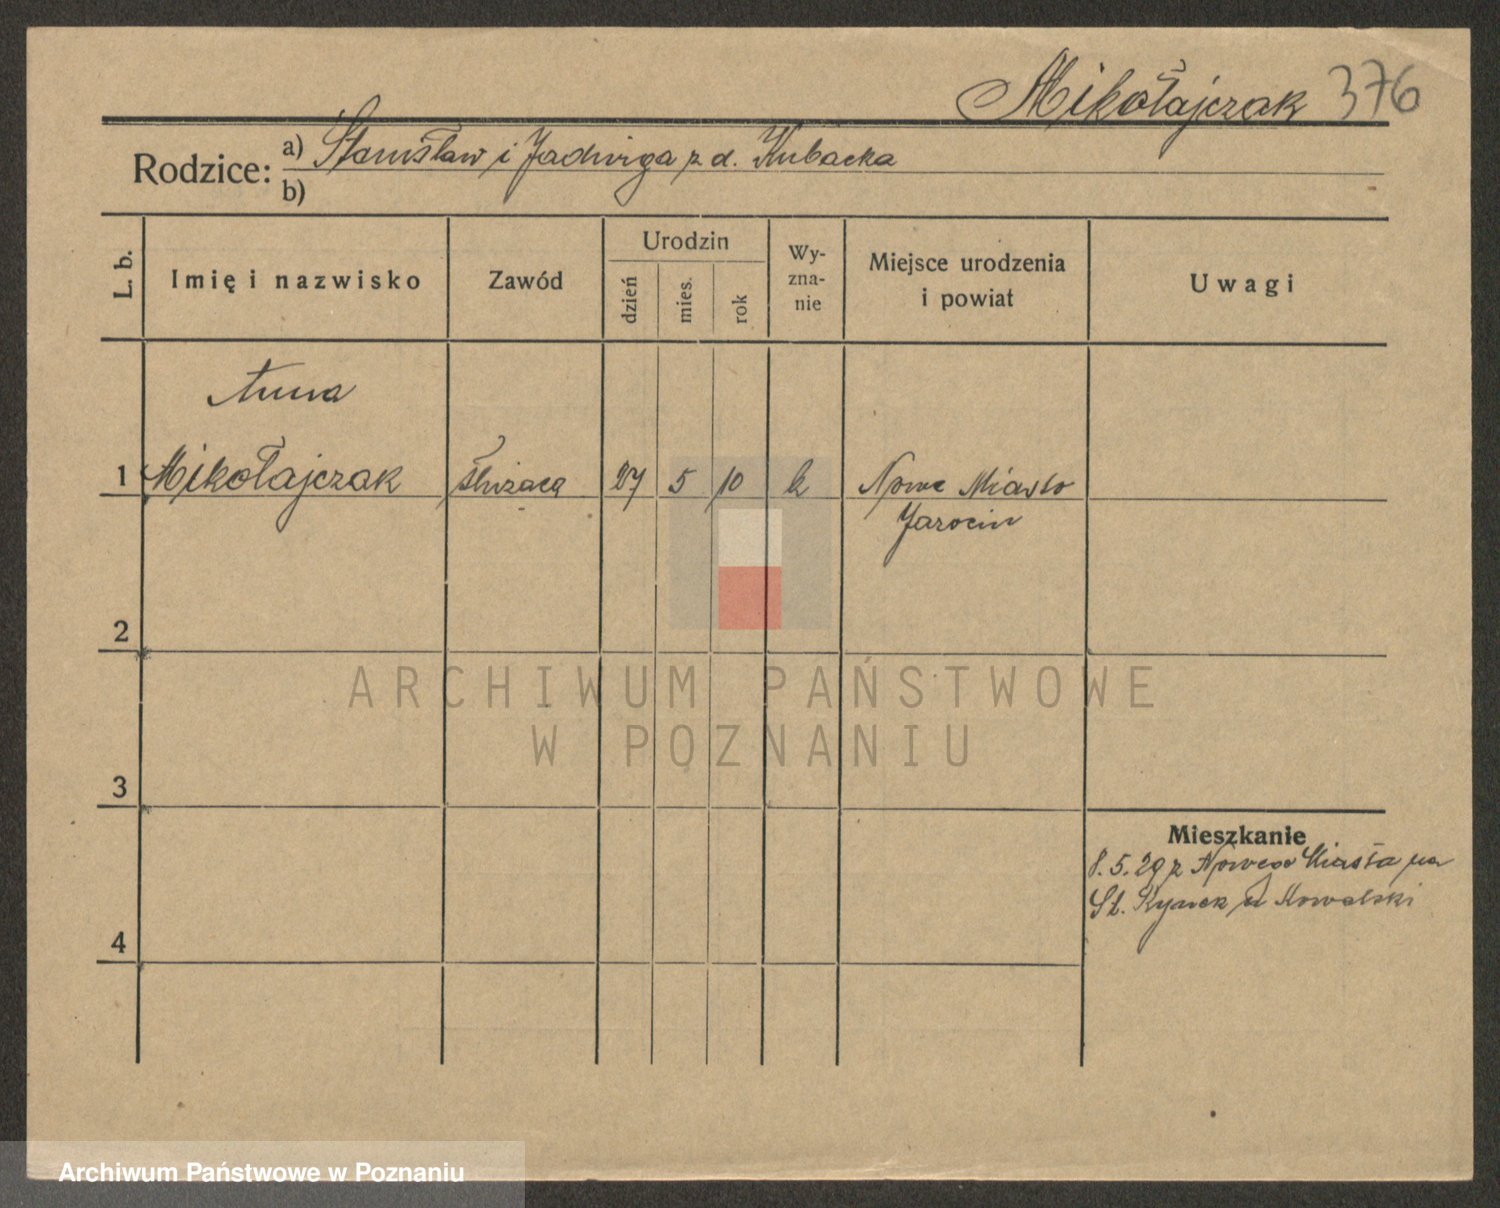 Mikołajczak 376
Rodzice: a) Stanisław i Jadwiga z d. Kubacka
b)
L. b.
Imię i nazwisko
Zawód
Urodzin
dzień
mies.
rok
Wy-
zna-
nie
Miejsce urodzenia
i powiat
Uwagi
Anna
1 Mikołajczak służąca 27 5 10 k Nowe Miasto
Jarocin
2
3
4
Mieszkanie
8.5.29 z Nowego Miasta na
St. Rynek Kowalski
ARCHIWUM PAŃSTWOWE
W POZNANIU
Archiwum Państwowe w Poznaniu